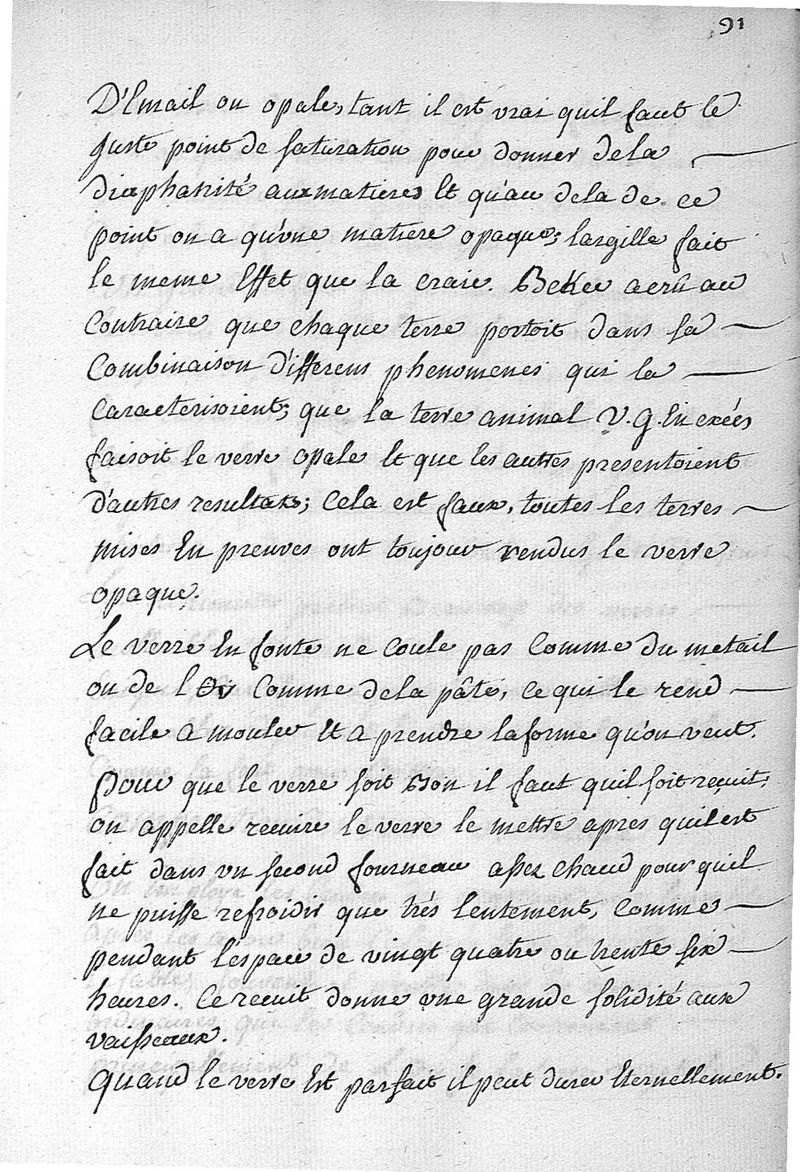 91
D'Email ou opale, tant il est vrai quil faut le
Juste point de saturation pour donner dela
diaphanité aux matieres Et qu'au dela de ce
point on a qu'une matiere opaque; largille fait
le meme Effet que la craie. Beker a crû au
Contraire que chaque terre portoit dans sa
Combinaison d'ifferens phenomenes qui la
caracterisoient; que la terre animal V. G. En
faisoit le verre opale Et que les autres presentoient
d'autres resultats; Cela est faux, toutes les terres
mises En preuves ont toujour rendus le verre
opaque.
Le verre En fonte ne coule pas comme du metail
ou de l'Or comme dela pâte, ce qui le rend
facile a mouler Et a prendre la forme qu'on veut.
Pour que le verre soit Bon il faut quil soit recuit,
on appelle recuire le verre le mettre apres quil est
fait dans un second fourneau assez chaud pour quil
ne puisse refroidir que trés lentement, comme
pendant l'espace de vingt quatre ou trente six
heures. Ce recuit donne une grande solidité aux
vaisseaux.
Quand le verre Est parfait il peut durer Eternellement.